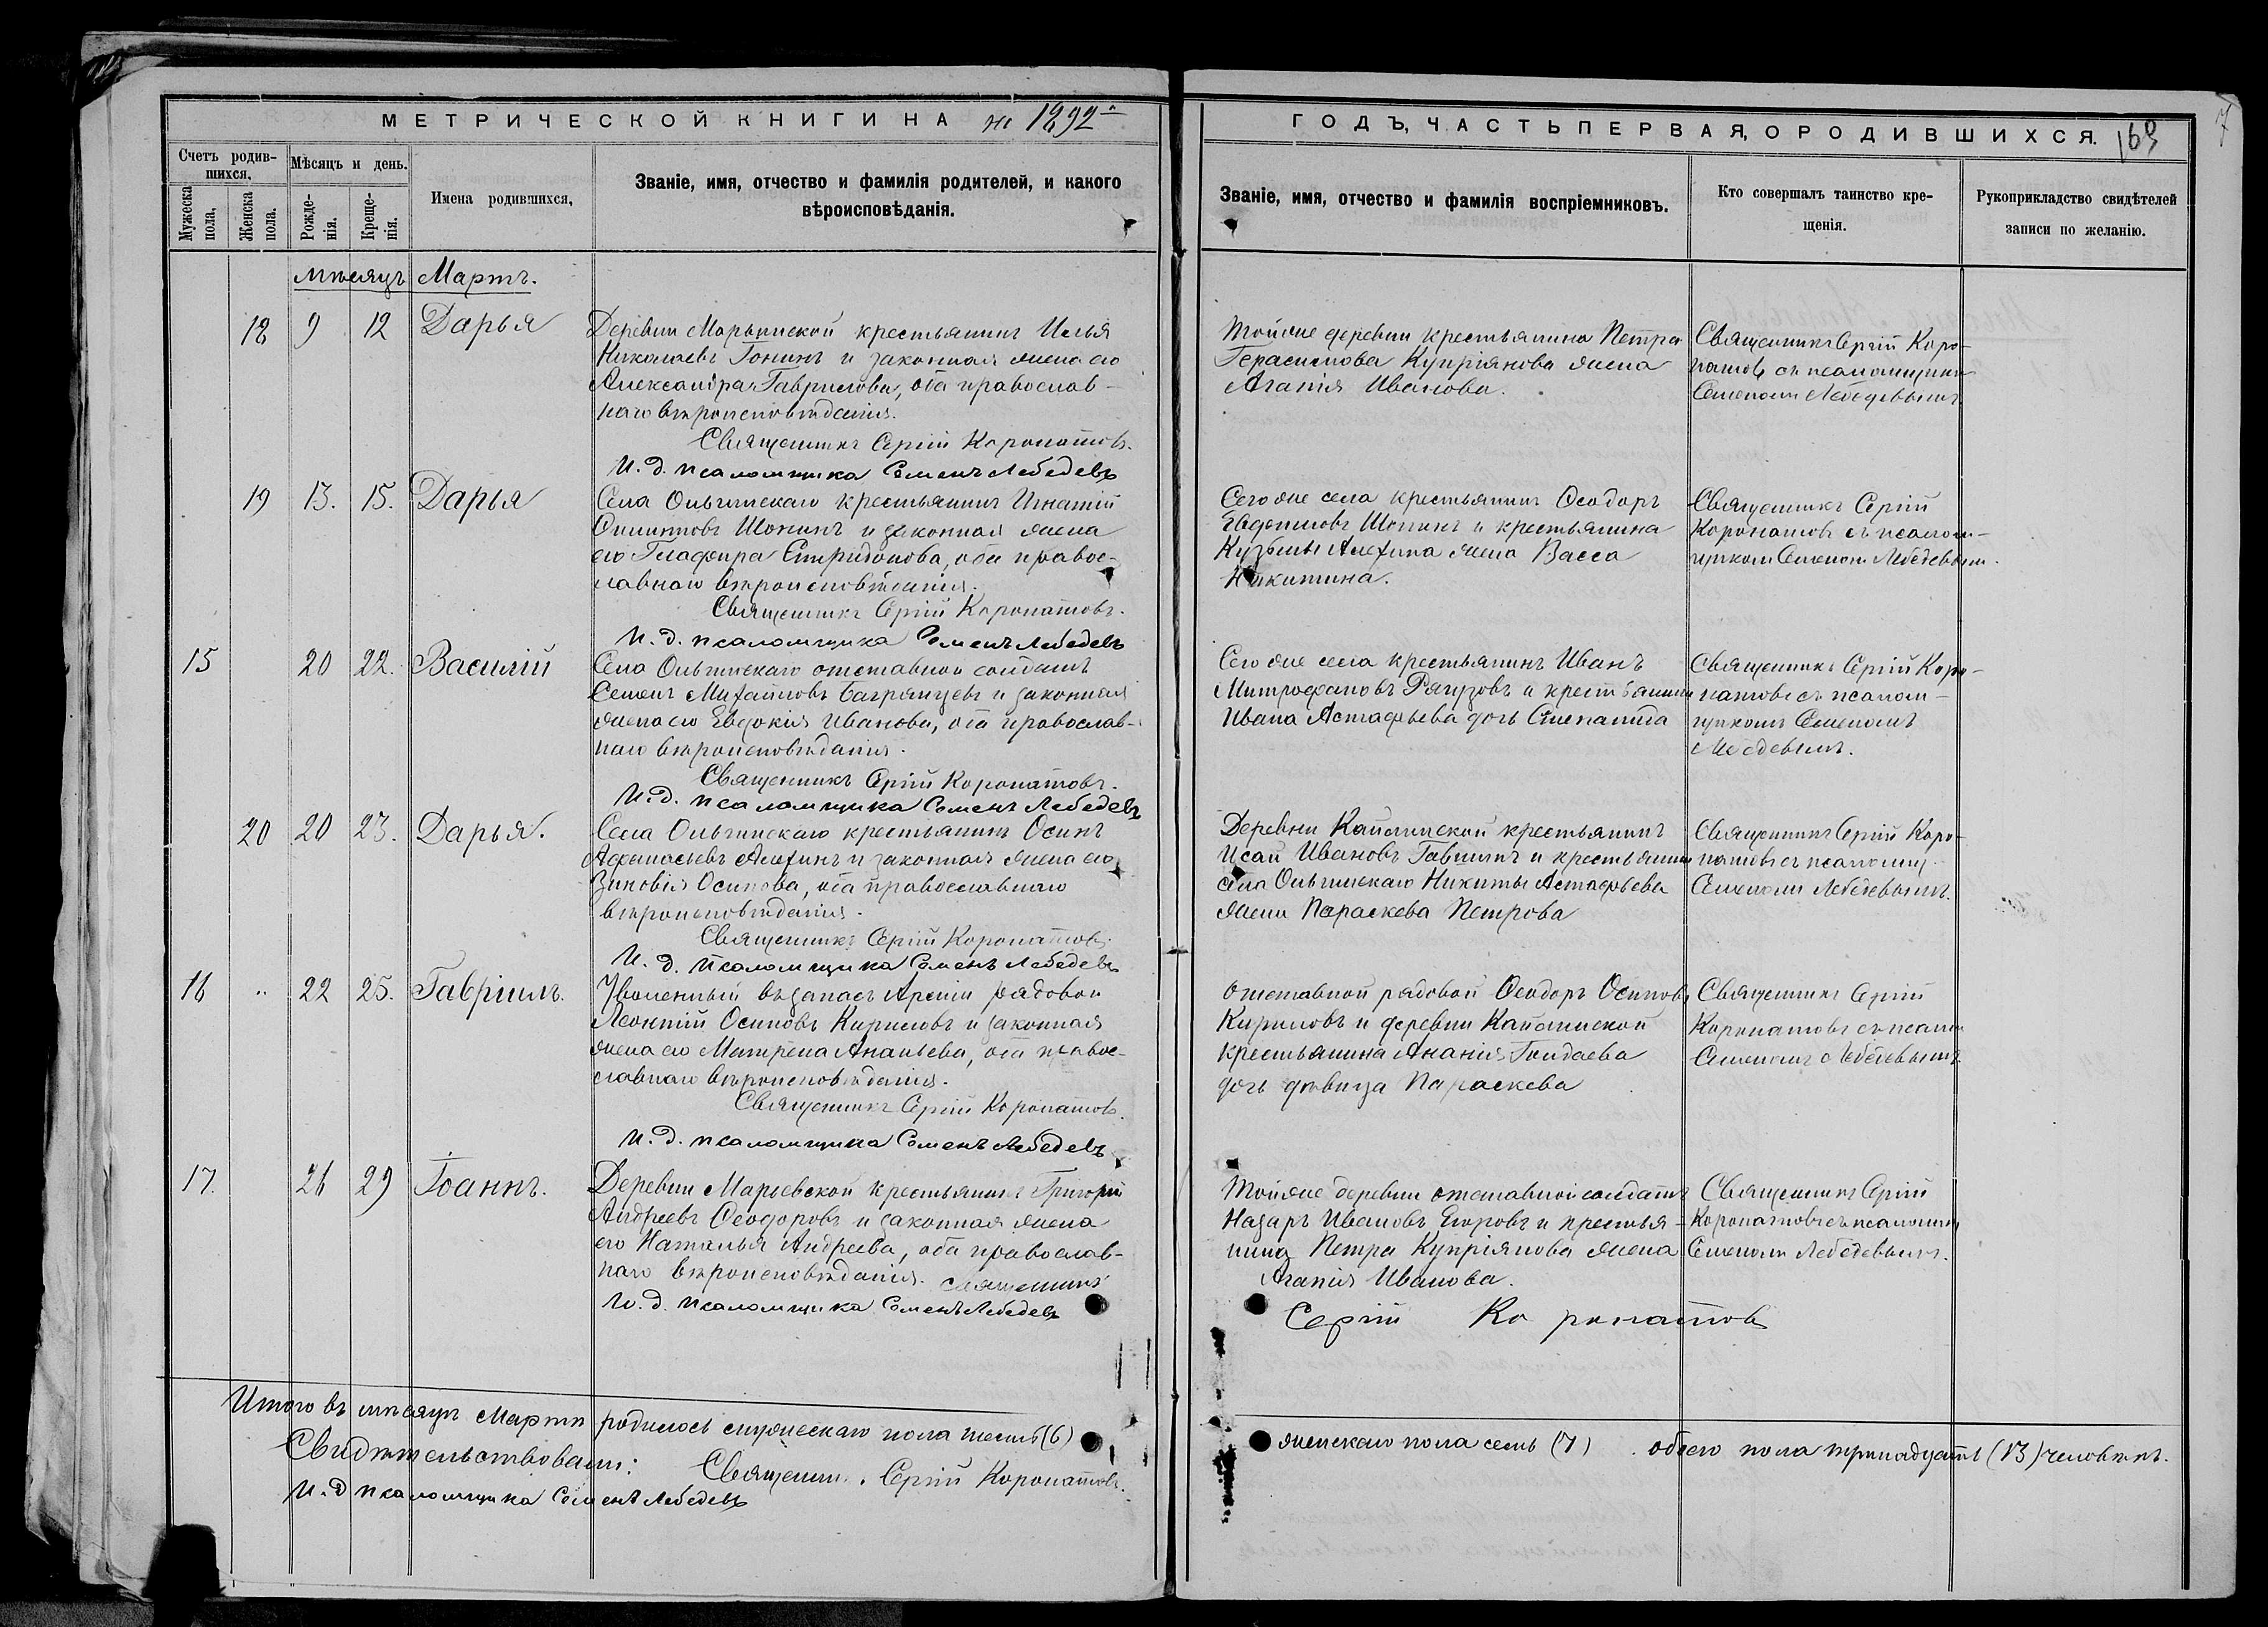 МЕТРИЧЕСКОЙ КНИГИ НА 1892
Счетъ родив-
шихся.
Мужеска
пола.
Женска
пола.
Мѣсяцъ и день.
Рожде-
нія.
Креще-
нія.
Имена родившихся.
Званіе, имя, отчество и фамилія родителей, и какого
вѣроисповѣданія.
мѣсяцъ Мартъ.
18 9 12 Дарья
Деревни Марьинской крестьянинъ Илья
Николаевъ Гонинъ и законная жена его
Александра Гаврилова, оба православ-
наго вѣроисповѣданія.
Священникъ Сергій Коронатовъ.
И. д. псаломщика Семенъ Лебедевъ
19 13. 15. Дарья
Села Ольгинскаго крестьянинъ Игнатій
Шонинъ и законная жена
его Глафира Спиридонова, оба правос-
лавнаго вѣроисповѣданія.
Священникъ Сергій Коронатовъ.
И. д. псаломщика Семенъ Лебедевъ
15 20 22. Василій
Села Ольгинскаго отставной солдатъ
Семенъ Михайловъ Багрянцевъ и законная
жена его Евдокія Иванова, оба православ-
наго вѣроисповѣданія.
Священникъ Сергій Коронатовъ.
И. д. псаломщика Семенъ Лебедевъ
20 20 23. Дарья.
Села Ольгинскаго крестьянинъ Осипъ
Афанасьевъ Алехинъ и законная жена его
Зиновія Осипова, оба православнаго
вѣроисповѣданія.
Священникъ Сергій Коронатовъ.
И. д. псаломщика Семенъ Лебедевъ
16 " 22 25. Гавріилъ.
Уволенный въ запасъ Арміи рядовой
Леонтій Осиповъ Кириловъ и законная
жена его Матрена Ананьева, оба правос-
лавнаго вѣроисповѣданія.
Священникъ Сергій Коронатовъ.
И. д. псаломщика Семенъ Лебедевъ
17. 26 29 Іоаннъ.
Деревни Марьевской крестьянинъ Григорій
Андреевъ Ѳеодоровъ и законная жена
его Наталья Андреева, оба православ-
наго вѣроисповѣданія. Священникъ
И. д. псаломщика Семенъ Лебедевъ
Итого въ мѣсяцѣ Мартѣ родилось мужескаго пола шесть (6)
Свидѣтельствовали: Священн. Сергій Коронатовъ.
И. д. псаломщика Семенъ Лебедевъ
ГОДЪ, ЧАСТЬ ПЕРВАЯ, О РОДИВШИХСЯ. 169
7
Званіе, имя, отчество и фамилія воспріемниковъ.
Кто совершалъ таинство кре-
щенія.
Рукоприкладство свидѣтелей
записи по желанію.
Тойже деревни крестьянина Петра
Герасимова Купріянова жена
Агапія Иванова.
Священникъ Сергій Коро-
натовъ съ псаломщикомъ
Семеномъ Лебедевымъ.
Сегоже села крестьянинъ Ѳеодоръ
Евдокимовъ Шонинъ и крестьянина
Кузьмы Алехина жена Васса
Никитина.
Священникъ Сергій
Коронатовъ съ псалом-
щикомъ Семеномъ Лебедевымъ.
Сегоже села крестьянинъ Иванъ
Митрофановъ Рянзовъ и крестьянина
Ивана Астафьева дочь Степанида
Священникъ Сергій Коро-
натовъ съ псалом-
щикомъ Семеномъ
Лебедевымъ.
Деревни крестьянинъ
Исай Ивановъ и крестьянина
села Ольгинскаго Никиты Астафьева
жена Параскева Петрова
Священникъ Сергій Коро-
натовъ съ псаломщ.
Семеномъ Лебедевымъ.
Отставной рядовой Ѳеодоръ Осиповъ
Кириловъ и деревни
крестьянина Ананія Гондаева
дочь дѣвица Параскева
Священникъ Сергій
Коронатовъ съ псалом
Семеномъ Лебедевымъ.
Тойже деревни отставной солдатъ
Назаръ Ивановъ Егоровъ и крестья-
нина Петра Купріянова жена
Агапія Иванова.
Священникъ Сергій
Коронатовъ съ псаломщ
Семеномъ Лебедевымъ.
Сергій Коронатовъ
женскаго пола семь (7) обоего пола тринадцать (13) человѣкъ.